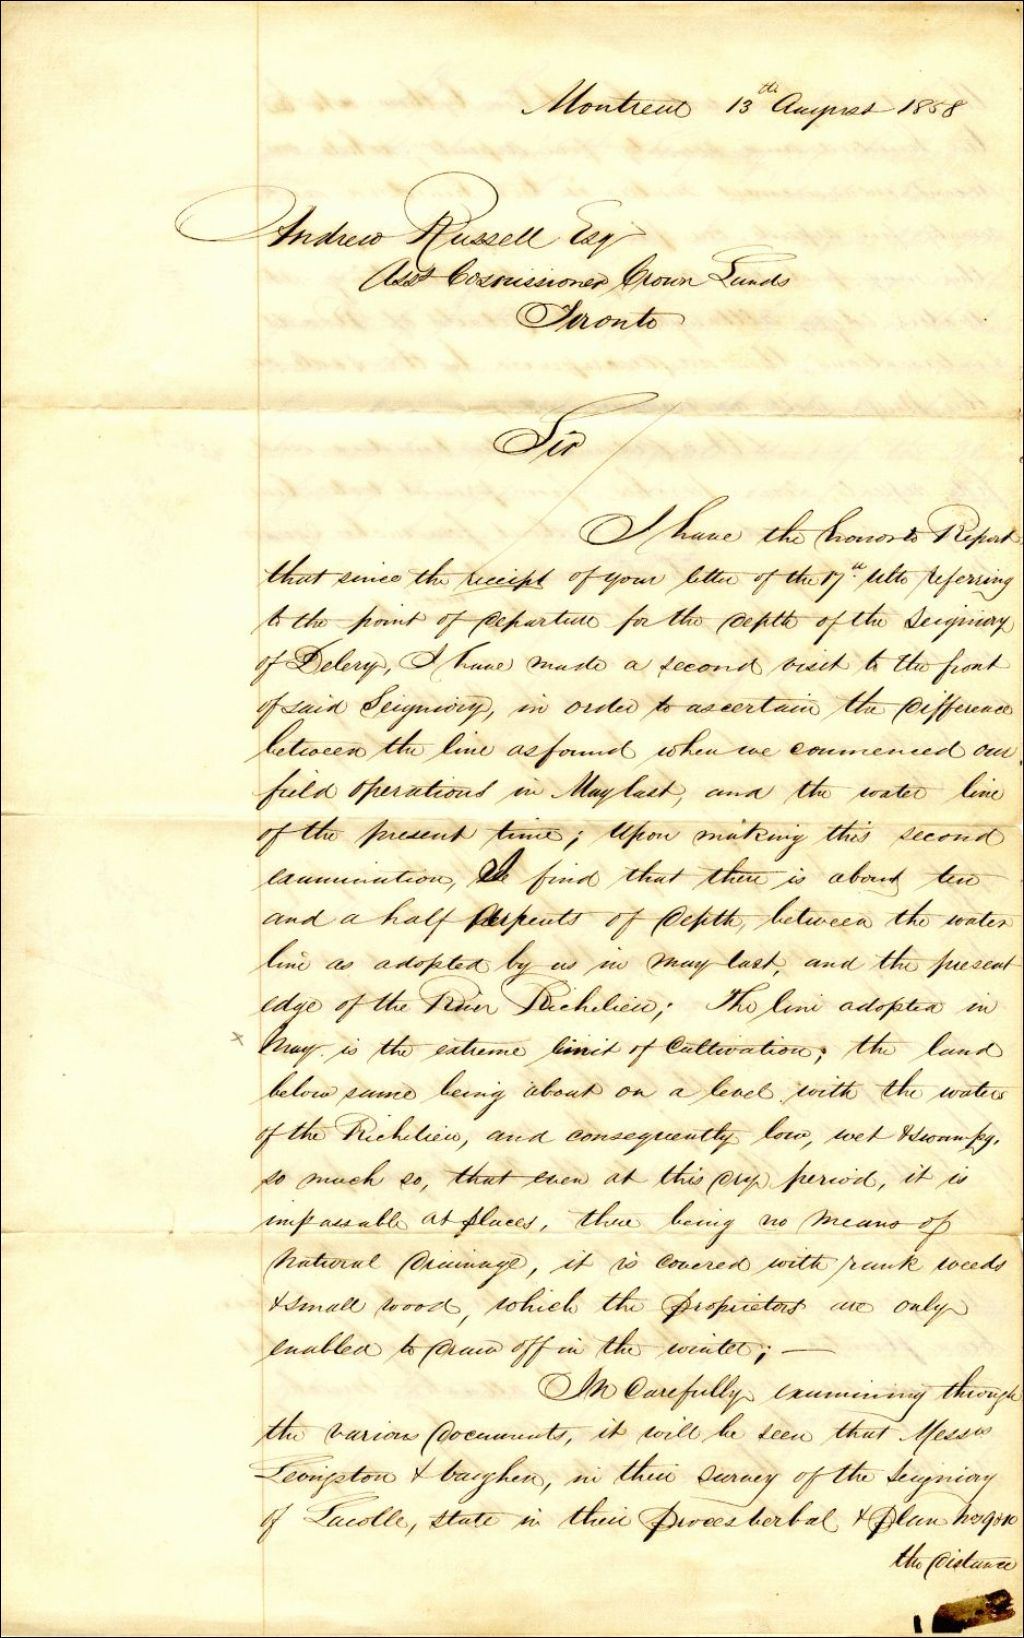 Montreal 13th August 1858
Andrew Russell Esqr
Asst Commissioner Crown Lands
Toronto
Sir
I have the honor to Report
that since the receipt of your letter of the 17th Ulto referring
to the point of departure for the depth of the Seigniory
of Delery, I have made a second visit to the front
of said Seigniory, in order to ascertain the difference
between the line as found when we commenced our
field operations in May last, and the water line
of the present time; Upon making this second
examination, I find that there is about ten
and a half Arpents of depth, between the water
line as adopted by us in May last, and the present
edge of the River Richelieu; The line adopted in
x May is the extreme limit of Cultivation; the land
below same being about on a level with the waters
of the Richelieu, and consequently low, wet & swampy.
so much so, that even at this dry period, it is
impassable at places, there being no means of
Natural drainage, it is covered with rank weeds
& small wood, which the proprietors are only
enabled to draw off in the winter; —
In Carefully examining through
the various documents, it will be seen that Messrs
Levingston & in their survey of the Seigniory
of Lacolle, state in their Proces Verbal & Plan
the distance